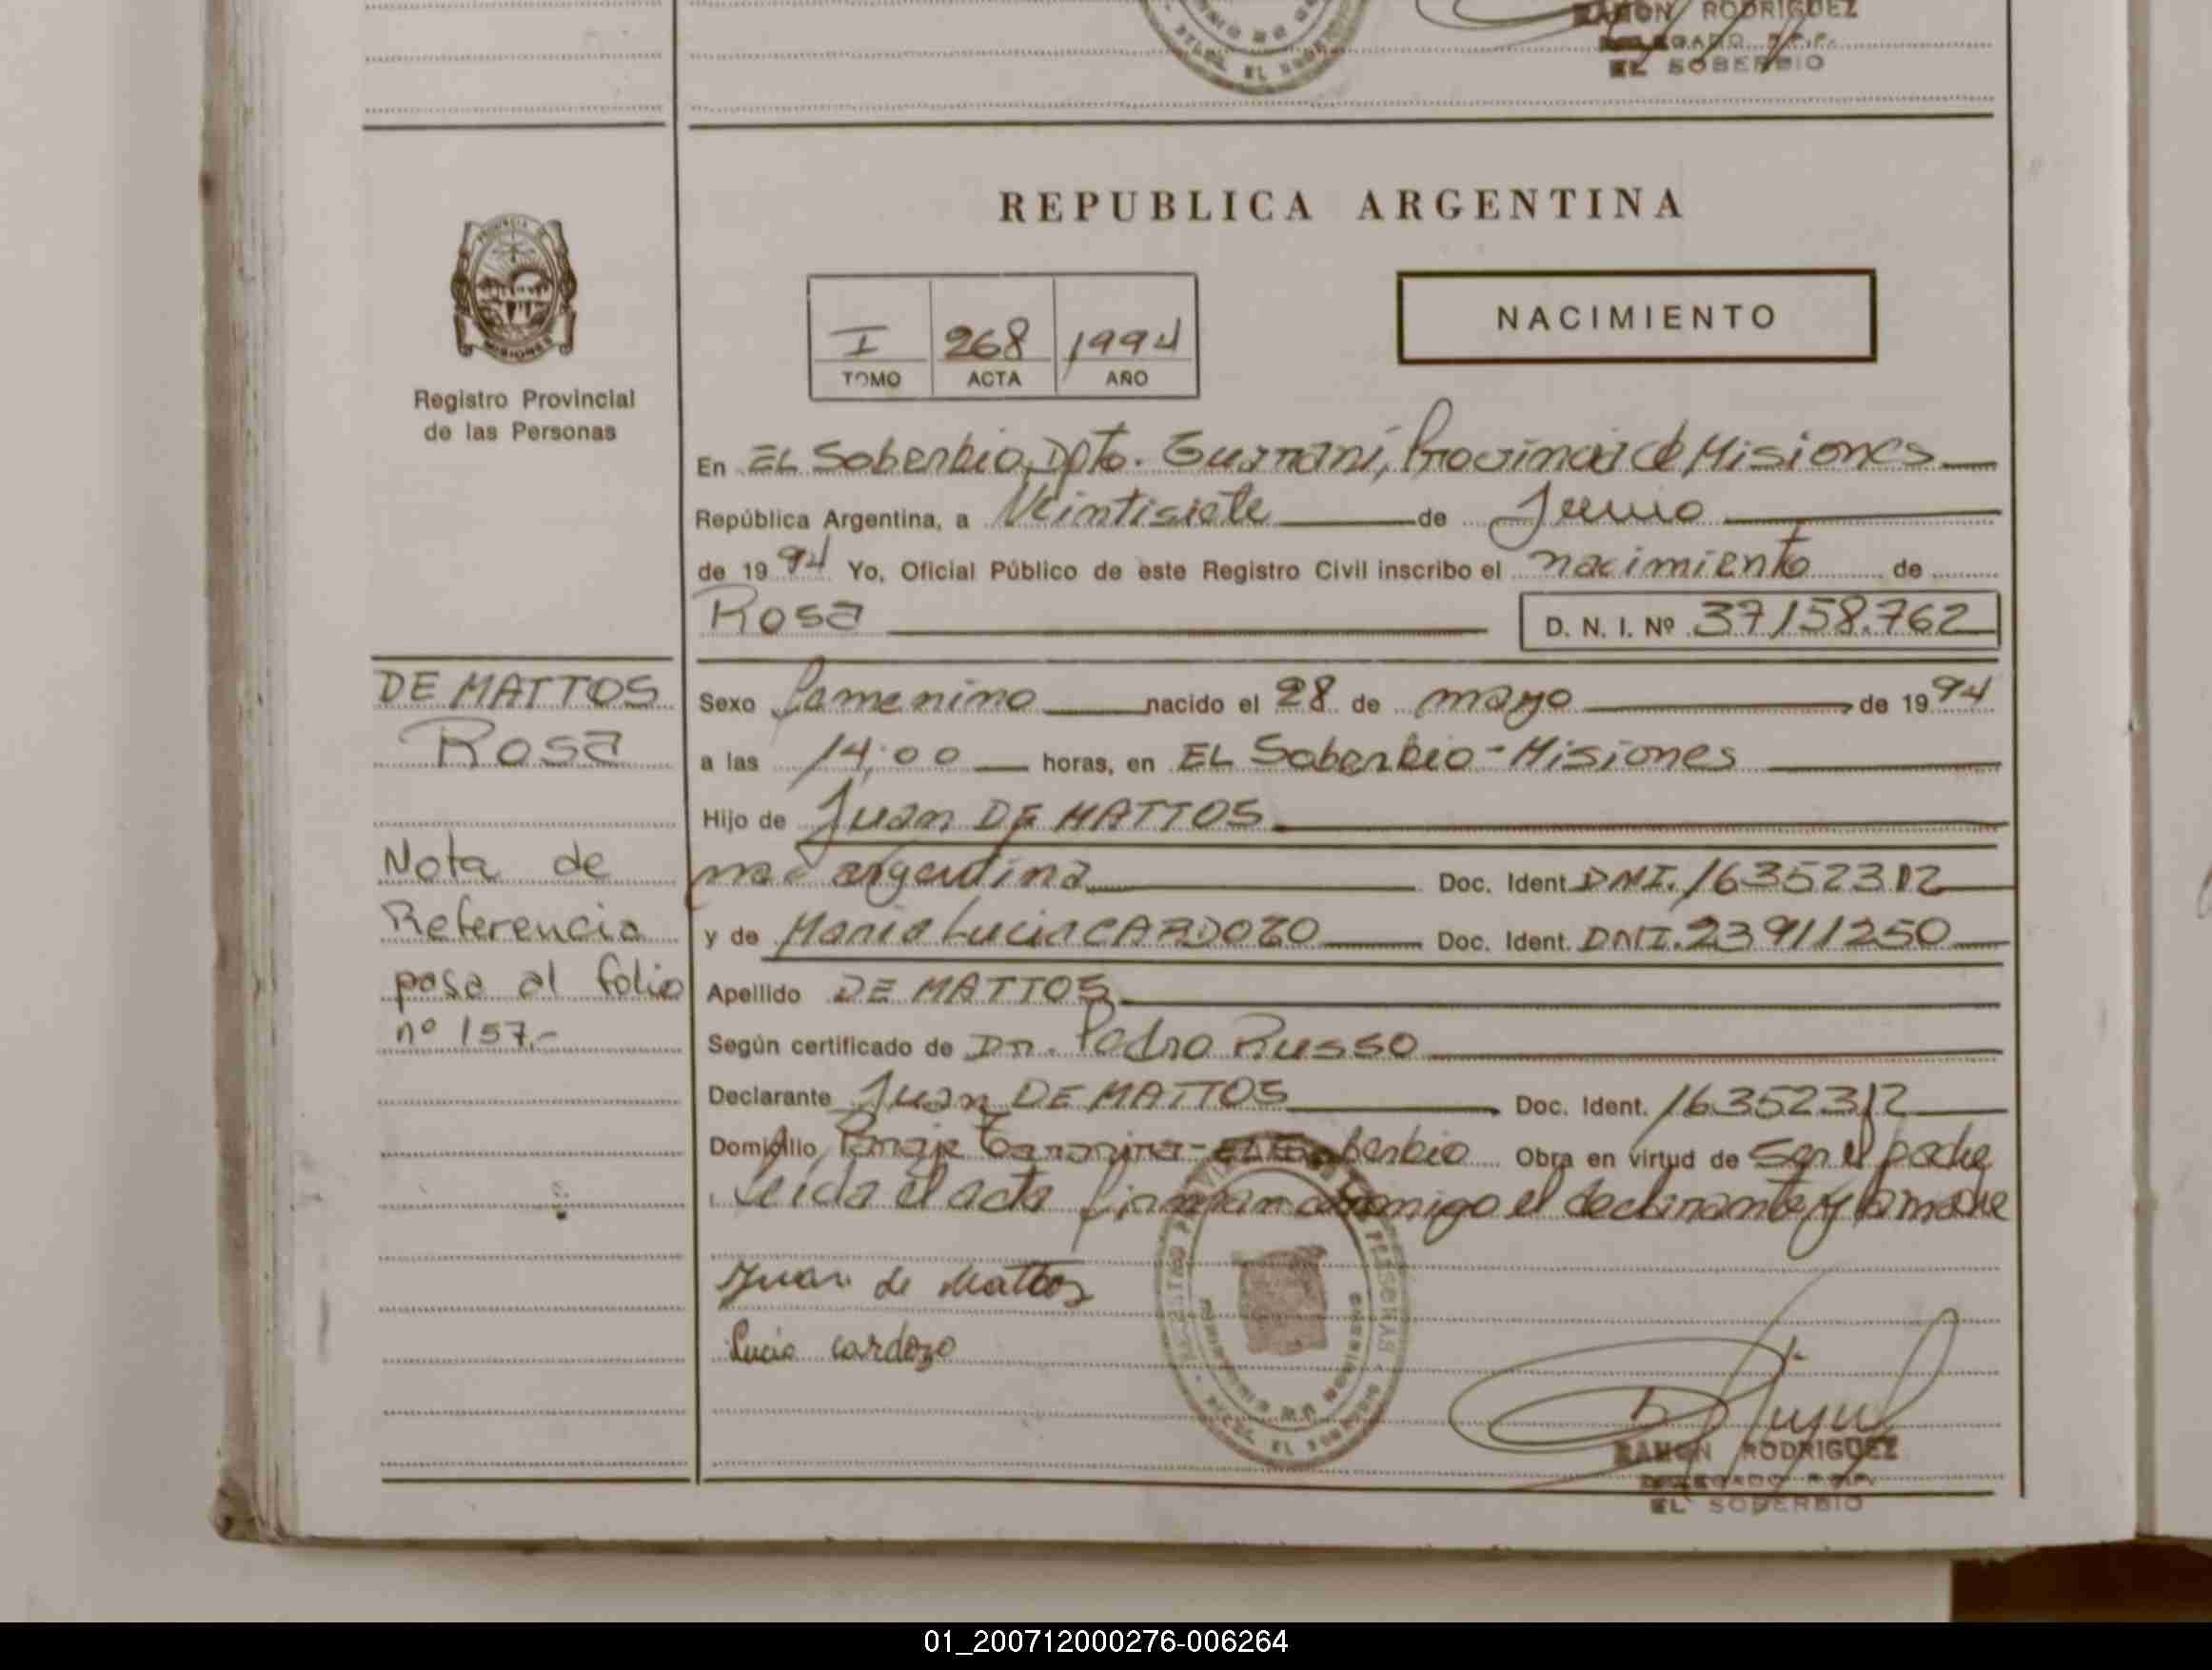 RAMON RODRIGUEZ
DELEGADO R.P.P.
EL SOBERBIO
REPUBLICA ARGENTINA
PROVINCIA DE
MISIONES
Registro Provincial
de las Personas
I 268 1994
TOMO ACTA AÑO
NACIMIENTO
En EL Soberbio, Dpto. Guaraní, Provincia de Misiones
República Argentina, a Veintisiete de Junio
de 1994 Yo, Oficial Público de este Registro Civil inscribo el nacimiento de
Rosa D. N. I. Nº 37158.762
DE MATTOS
Rosa
Nota de
Referencia
pasa al folio
nº 157.-
Sexo femenino nacido el 28 de mayo de 1994
a las 14:00 horas, en EL Soberbio - Misiones
Hijo de Juan DE MATTOS
argentina Doc. Ident DNI. 16352312
y de Maria Lucia CARDOZO Doc. Ident. DNI. 23911250
Apellido DE MATTOS
Según certificado de Dr. Pedro Russo
Declarante Juan DE MATTOS Doc. Ident. 16352312
Domicilio Soberbio Obra en virtud de Ser el padre
Leida el acta firman conmigo el declarante y la madre
Juan de Mattos
Lucia Cardozo
RAMON RODRIGUEZ
DELEGADO R.P.P.
EL SOBERBIO
01_200712000276-006264